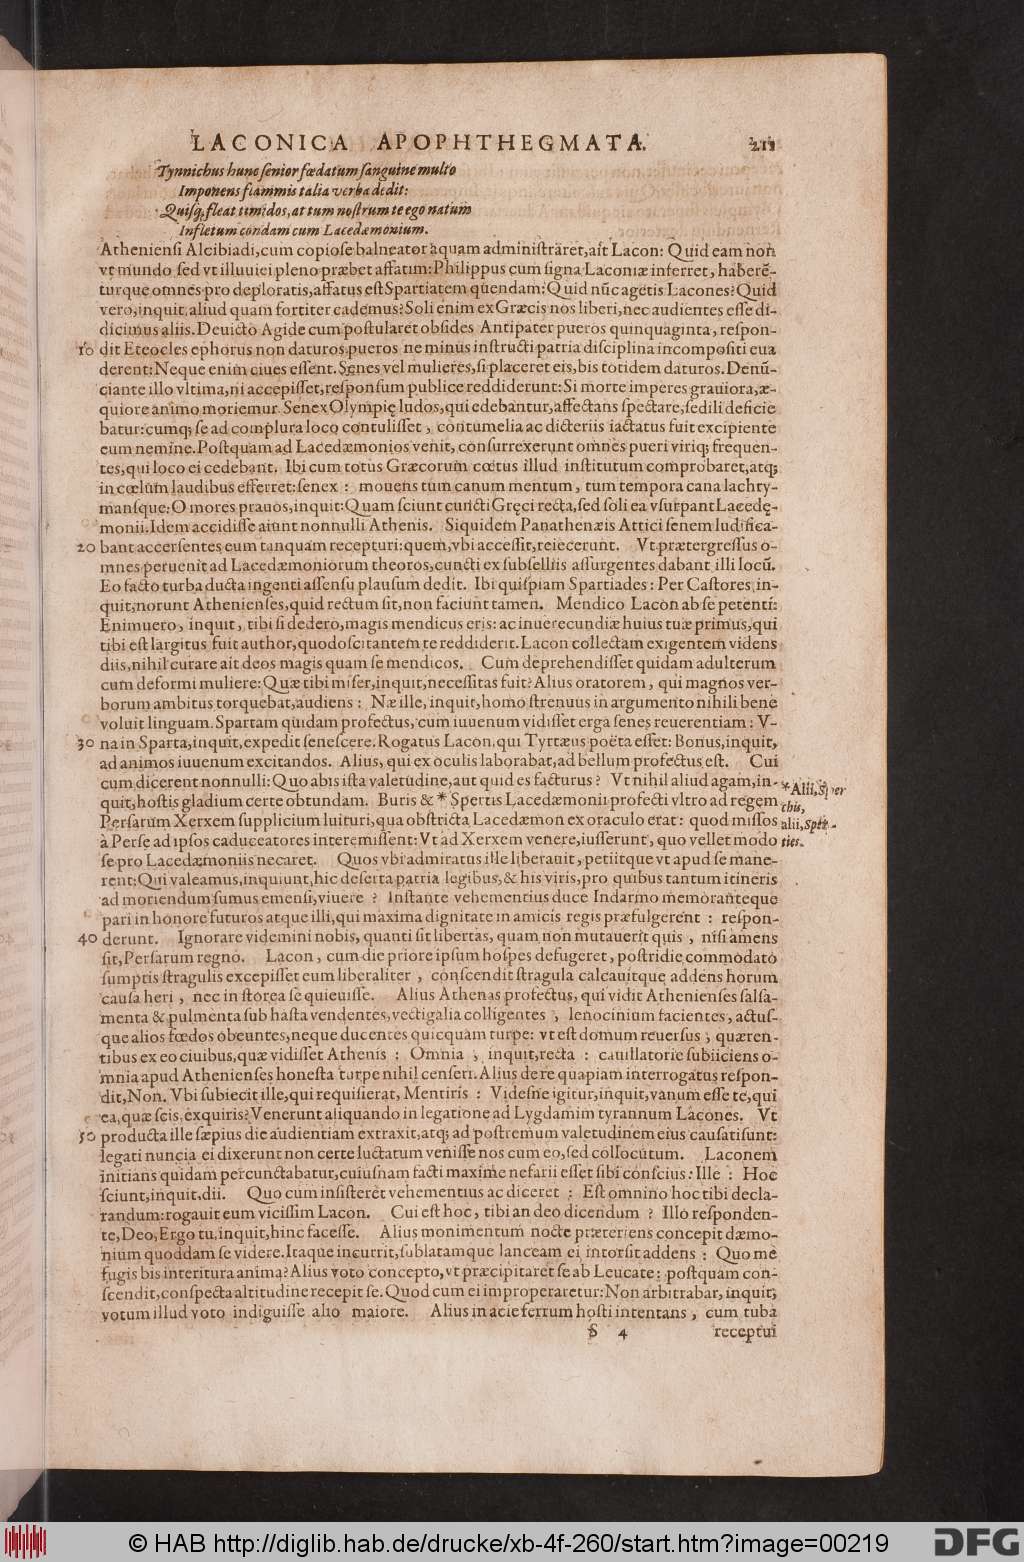 LACONICA APOPHTHEGMATA. 211
Tynnichus hunc senior fœdatum sanguine multo
Imponens flammis talia verba dedit:
Quisq; fleat timidos, at tum nostrum te ego natum
Infletum condam cum Lacedæmonium.
Atheniensi Alcibiadi, cum copiose balneator aquam administraret, ait Lacon: Quid eam non
vt mundo sed vt illuuiei pleno præbet affatim: Philippus cum signa Laconiæ inferret, haberē-
turque omnes pro deploratis, affatus est Spartiatem quendam: Quid nūc agetis Lacones? Quid
vero, inquit, aliud quam fortiter cademus? Soli enim ex Græcis nos liberi, nec audientes esse di-
dicimus aliis. Deuicto Agide cum postularet obsides Antipater pueros quinquaginta, respon-
10 dit Eteocles ephorus non daturos pueros ne minus instructi patria disciplina incompositi eua
derent: Neque enim ciues essent. Senes vel mulieres, si placeret eis, bis totidem daturos. Denū-
ciante illo vltima, ni accepisset, responsum publice reddiderunt: Si morte imperes grauiora, æ-
quiore animo moriemur. Senex Olympię ludos, qui edebantur, affectans spectare, sedili deficie
batur: cumq; se ad complura loco contulisset, contumelia ac dicteriis iactatus fuit excipiente
eum nemine. Postquam ad Lacedæmonios venit, consurrexerunt omnes pueri viriq; frequen-
tes, qui loco ei cedebant. Ibi cum totus Græcorum cœtus illud institutum comprobaret, atq;
in cœlum laudibus efferret: senex : mouens tum canum mentum, tum tempora cana lachry-
mansque: O mores prauos, inquit: Quam sciunt cuncti Gręci recta, sed soli ea vsurpant Lacedę-
monii. Idem accidisse aiunt nonnulli Athenis. Siquidem Panathenæis Attici senem ludifica-
20 bant accersentes eum tanquam recepturi: quem, vbi accessit, reiecerunt. Vt prætergressus o-
mnes peruenit ad Lacedæmoniorum theoros, cuncti ex subselliis assurgentes dabant illi locū.
Eo facto turba ducta ingenti assensu plausum dedit. Ibi quispiam Spartiades: Per Castores, in-
quit, norunt Athenienses, quid rectum sit, non faciunt tamen. Mendico Lacon ab se petenti:
Enimuero, inquit, tibi si dedero, magis mendicus eris: ac inuerecundiæ huius tuæ primus, qui
tibi est largitus fuit author, quod oscitantem te reddiderit. Lacon collectam exigentem videns
diis, nihil curare ait deos magis quam se mendicos. Cum deprehendisset quidam adulterum
cum deformi muliere: Quæ tibi miser, inquit, necessitas fuit? Alius oratorem, qui magnos ver-
borum ambitus torquebat, audiens : Næ ille, inquit, homo strenuus in argumento nihili bene
voluit linguam. Spartam quidam profectus, cum iuuenum vidisset erga senes reuerentiam: V-
30 na in Sparta, inquit, expedit senescere. Rogatus Lacon, qui Tyrtæus poëta esset: Bonus, inquit,
ad animos iuuenum excitandos. Alius, qui ex oculis laborabat, ad bellum profectus est. Cui
cum dicerent nonnulli: Quo abis ista valetudine, aut quid es facturus? Vt nihil aliud agam, in-
quit, hostis gladium certe obtundam. Buris & * Spertis Lacedæmonii profecti vltro ad regem
Persarum Xerxem supplicium luituri, qua obstricta Lacedæmon ex oraculo erat: quod missos
à Perse ad ipsos caduceatores interemissent: Vt ad Xerxem venere, iusserunt, quo vellet modo
se pro Lacedæmoniis necaret. Quos vbi admiratus ille liberauit, petiitque vt apud se mane-
rent: Qui valeamus, inquiunt, hic deserta patria legibus, & his viris, pro quibus tantum itineris
ad moriendum sumus emensi, viuere ? Instante vehementius duce Indarmo memoranteque
pari in honore futuros atque illi, qui maxima dignitate in amicis regis præfulgerent : respon-
40 derunt. Ignorare videmini nobis, quanti sit libertas, quam non mutauerit quis , nisi amens
sit, Persarum regno. Lacon, cum die priore ipsum hospes defugeret, postridie commodato
sumptis stragulis excepisset eum liberaliter , conscendit stragula calcauitque addens horum
causa heri , nec in storea se quieuisse. Alius Athenas profectus, qui vidit Athenienses salsa-
menta & pulmenta sub hasta vendentes, vectigalia colligentes , lenocinium facientes, actus-
que alios fœdos obeuntes, neque ducentes quicquam turpe: vt est domum reuersus , quæren-
tibus ex eo ciuibus, quæ vidisset Athenis : Omnia , inquit, recta : cauillatorie subiiciens o-
mnia apud Athenienses honesta turpe nihil censeri. Alius de re quapiam interrogatus respon-
dit, Non. Vbi subiecit ille, qui requisierat, Mentiris : Videsne igitur, inquit, vanum esse te, qui
ea, quæ scis, exquiris? Venerunt aliquando in legatione ad Lygdamim tyrannum Lacones. Vt
50 producta ille sæpius die audientiam extraxit, atq; ad postremum valetudinem eius causati sunt:
legati nuncia ei dixerunt non certe luctatum venisse nos cum eo, sed collocutum. Laconem
initians quidam percunctabatur, cuiusnam facti maxime nefarii esset sibi conscius: Ille : Hoc
sciunt, inquit, dii. Quo cum insisteret vehementius ac diceret : Est omnino hoc tibi decla-
randum: rogauit eum vicissim Lacon. Cui est hoc, tibi an deo dicendum ? Illo responden-
te, Deo, Ergo tu, inquit, hinc facesse. Alius monimentum nocte præteriens concepit dæmo-
nium quoddam se videre. Itaque incurrit, sublatamque lanceam ei intorsit addens : Quo me
fugis bis interitura anima? Alius voto concepto, vt præcipitaret se ab Leucate: postquam con-
scendit, conspecta altitudine recepit se. Quod cum ei improperaretur: Non arbitrabar, inquit,
votum illud voto indiguisse alio maiore. Alius in acie ferrum hosti intentans , cum tuba
S 4 receptui
* Alii, Sper
chis,
alii, Sper-
ties.
© HAB http://diglib.hab.de/drucke/xb-4f-260/start.htm?image=00219
DFG